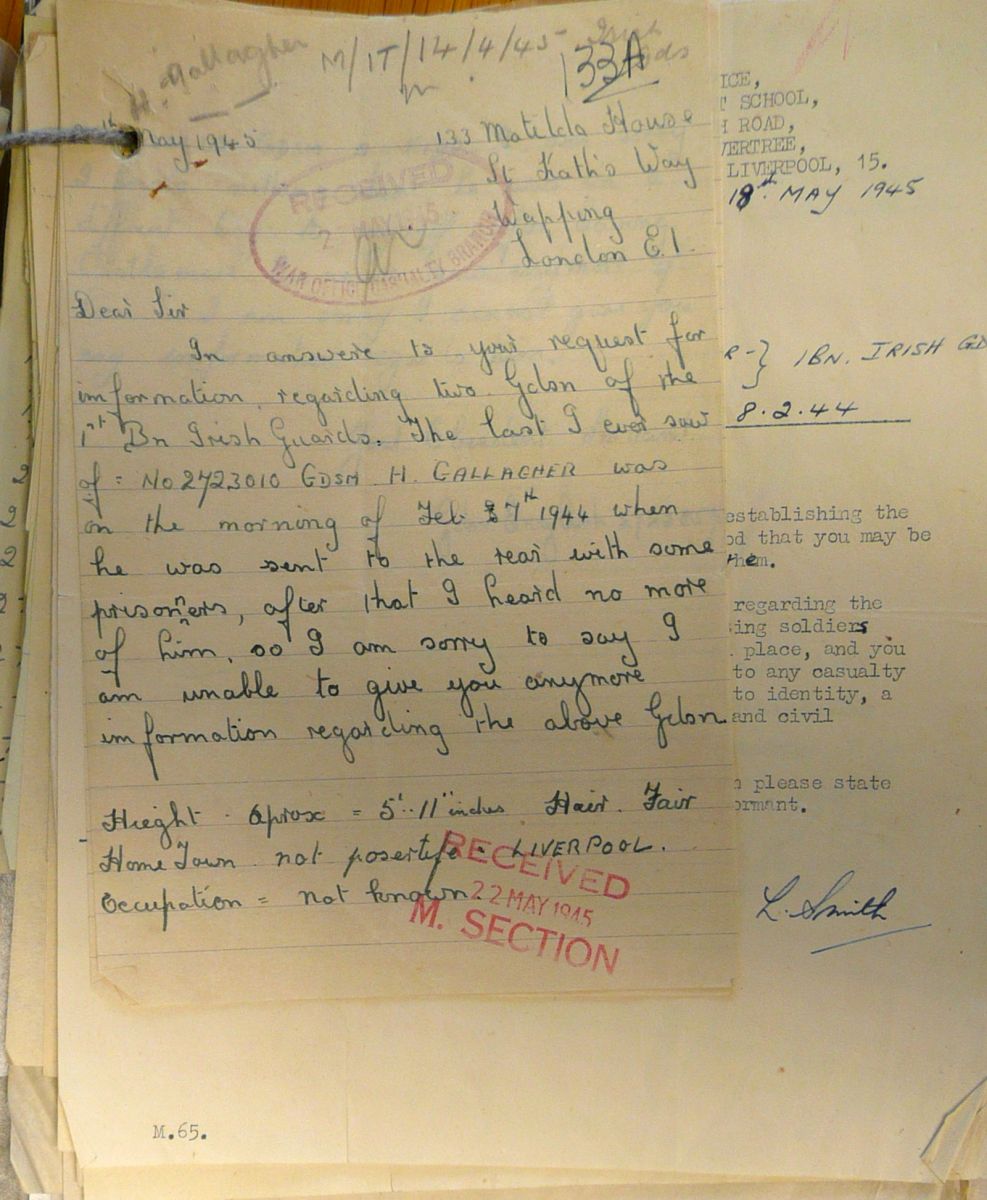 H. Gallagher
M/IT/14/4/45
133A
May 1945
133 Matilda House
St Kath's Way
Wapping
London E.1.
RECEIVED
MAY 1945
WAR OFFICE CASUALTY BRANCH
Dear Sir
In answere to your request for
information, regarding two Gdsn of the
1st Bn Irish Guards. The last I ever saw
of: No 2723010 GDSM H. GALLAGHER was
on the morning of Feb 7th 1944 when
he was sent to the rear with some
prisonners, after that I heard no more
of him, so I am sorry to say I
am unable to give you anymore
information regarding the above Gdsn.
Hieght. Aprox = 5'.11" inches Hair. Fair
Home Town not posertife. LIVERPOOL.
Occupation = not known.
RECEIVED
22 MAY 1945
M. SECTION
ICE,
SCHOOL,
ROAD,
VERTREE,
LIVERPOOL, 15.
18th MAY 1945
R-} 1BN. IRISH GD
8.2.44
establishing the
od that you may be
them.
regarding the
ing soldiers
place, and you
to any casualty
to identity, a
and civil
please state
ormant.
L. Smith
M.65.